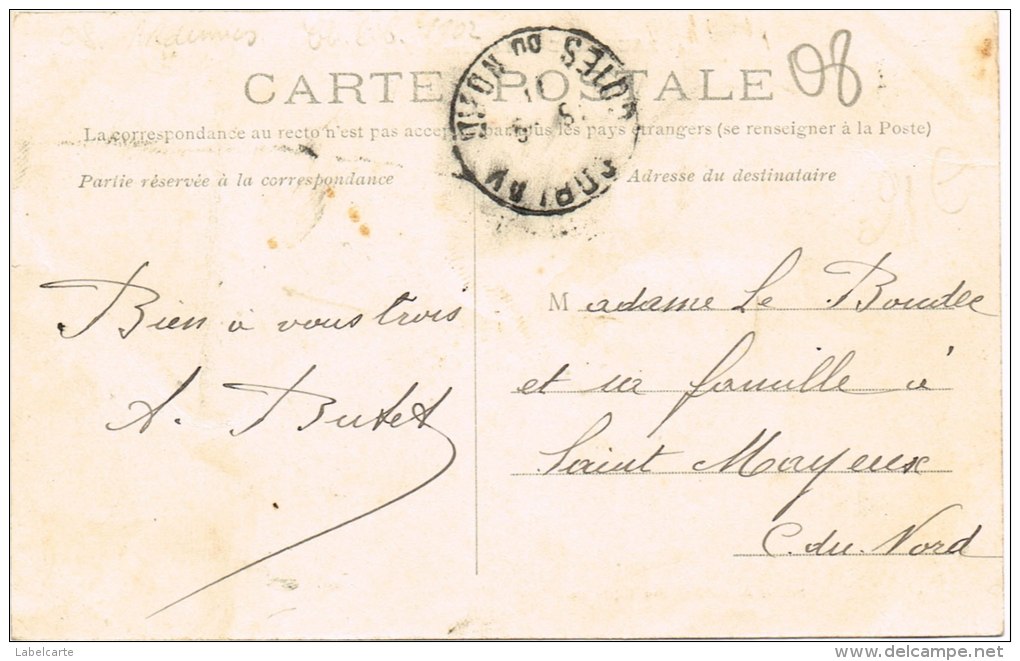 08 Ardennes
08
CARTE POSTALE
CÔTES DU NORD
CORLAY
La correspondance au recto n'est pas acceptée par tous les pays étrangers (se renseigner à la Poste)
Partie réservée à la correspondance
Adresse du destinataire
Bien à vous trois
A. Butet
Madame Le Boudec
et sa famille à
Saint Mayeux
C. du. Nord
Labelcarte
www.delcampe.net